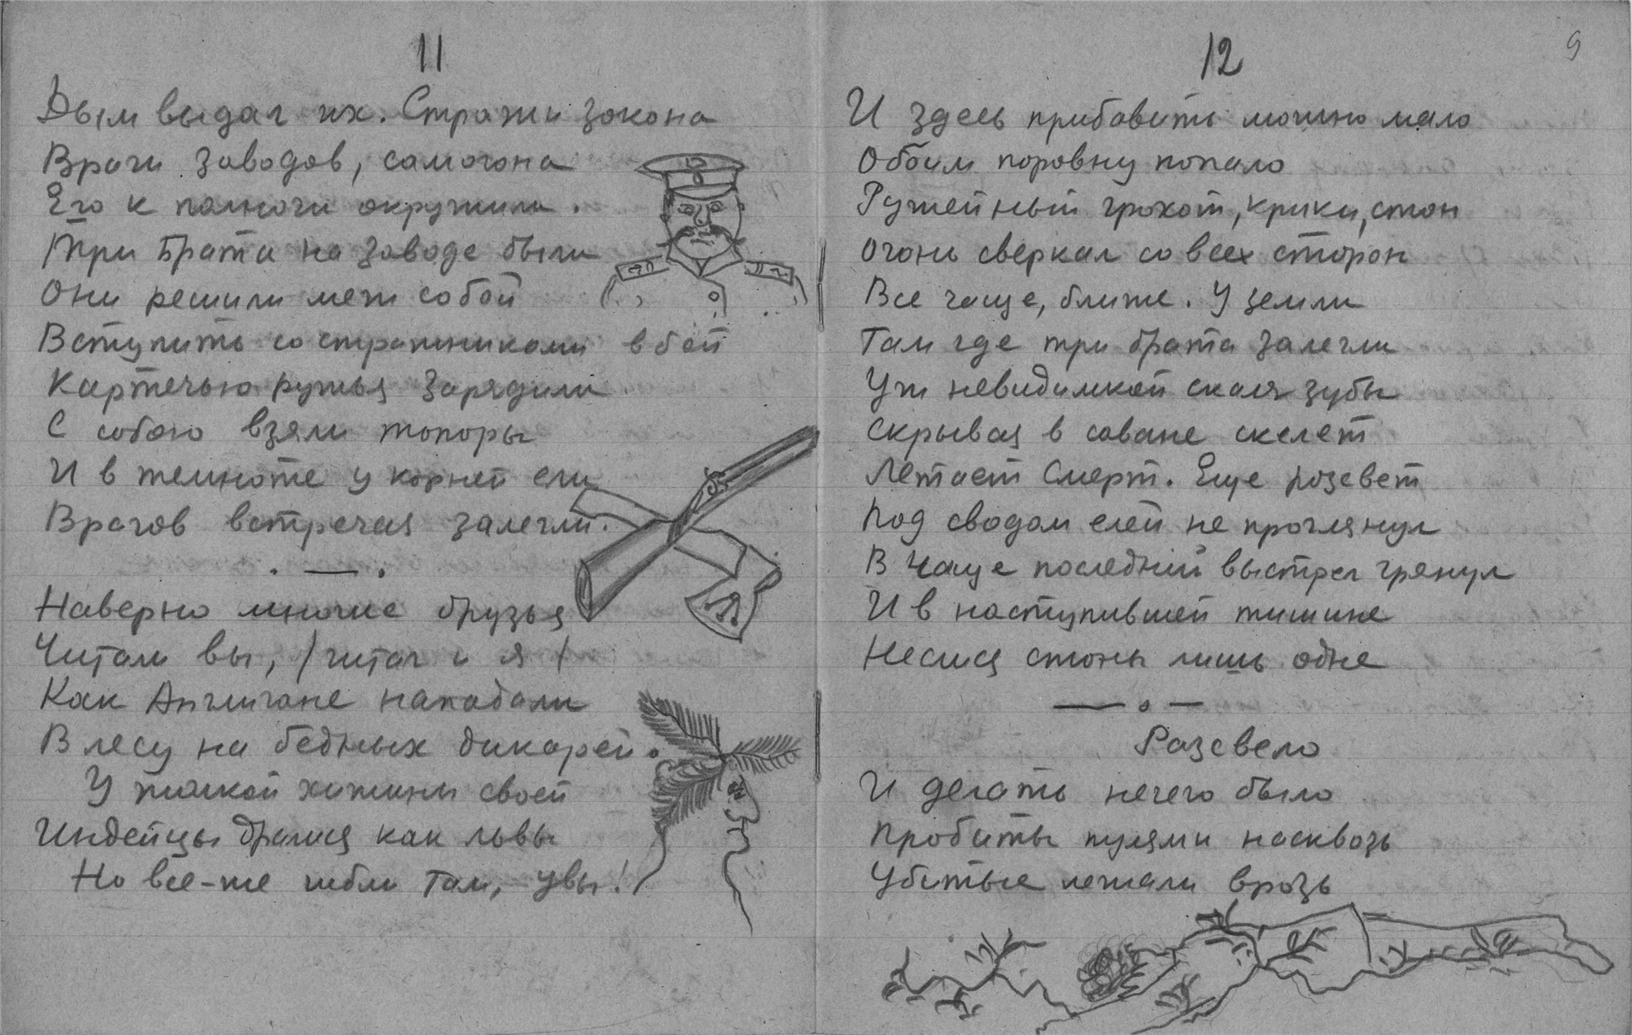 11
Дым выдал их. Стражи закона
Враги заводов, самогона
Его к полночи окружили.
Три брата на заводе были
Они решили меж собой
Вступить со стражниками в бой
Картечью ружья зарядили
С собою взяли топоры
И в темноте у корней ели
Врагов встречая залегли.
Наверно многие друзья
Читали вы, /читал и я/
Как Англичане нападали
В лесу на бедных дикарей.
У жалкой хижины своей
Индейцы дрались как львы
Но все-же гибли там, увы!
9
12
И здесь прибавить можно мало
Обоим поровну попало
Ружейный грохот, крики, стон
Огонь сверкал со всех сторон
Все чаще, ближе. У земли
Там где три брата залегли
Уж невидимкой скаля зубы
Скрывая в саване скелет
Летает Смерт. Еще розсвет
Под сводом елей не проглянул
В чаще последний выстрел грянул
И в наступившей тишине
Неслися стоны лишь одне
Разсвело
И делать нечего было
Пробиты пулями насквозь
Убитые лежали врозь